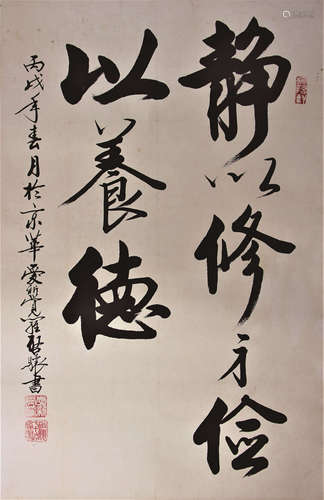 静以修身儉
以養德
丙戌年春月於京華愛新覺羅啟驤書